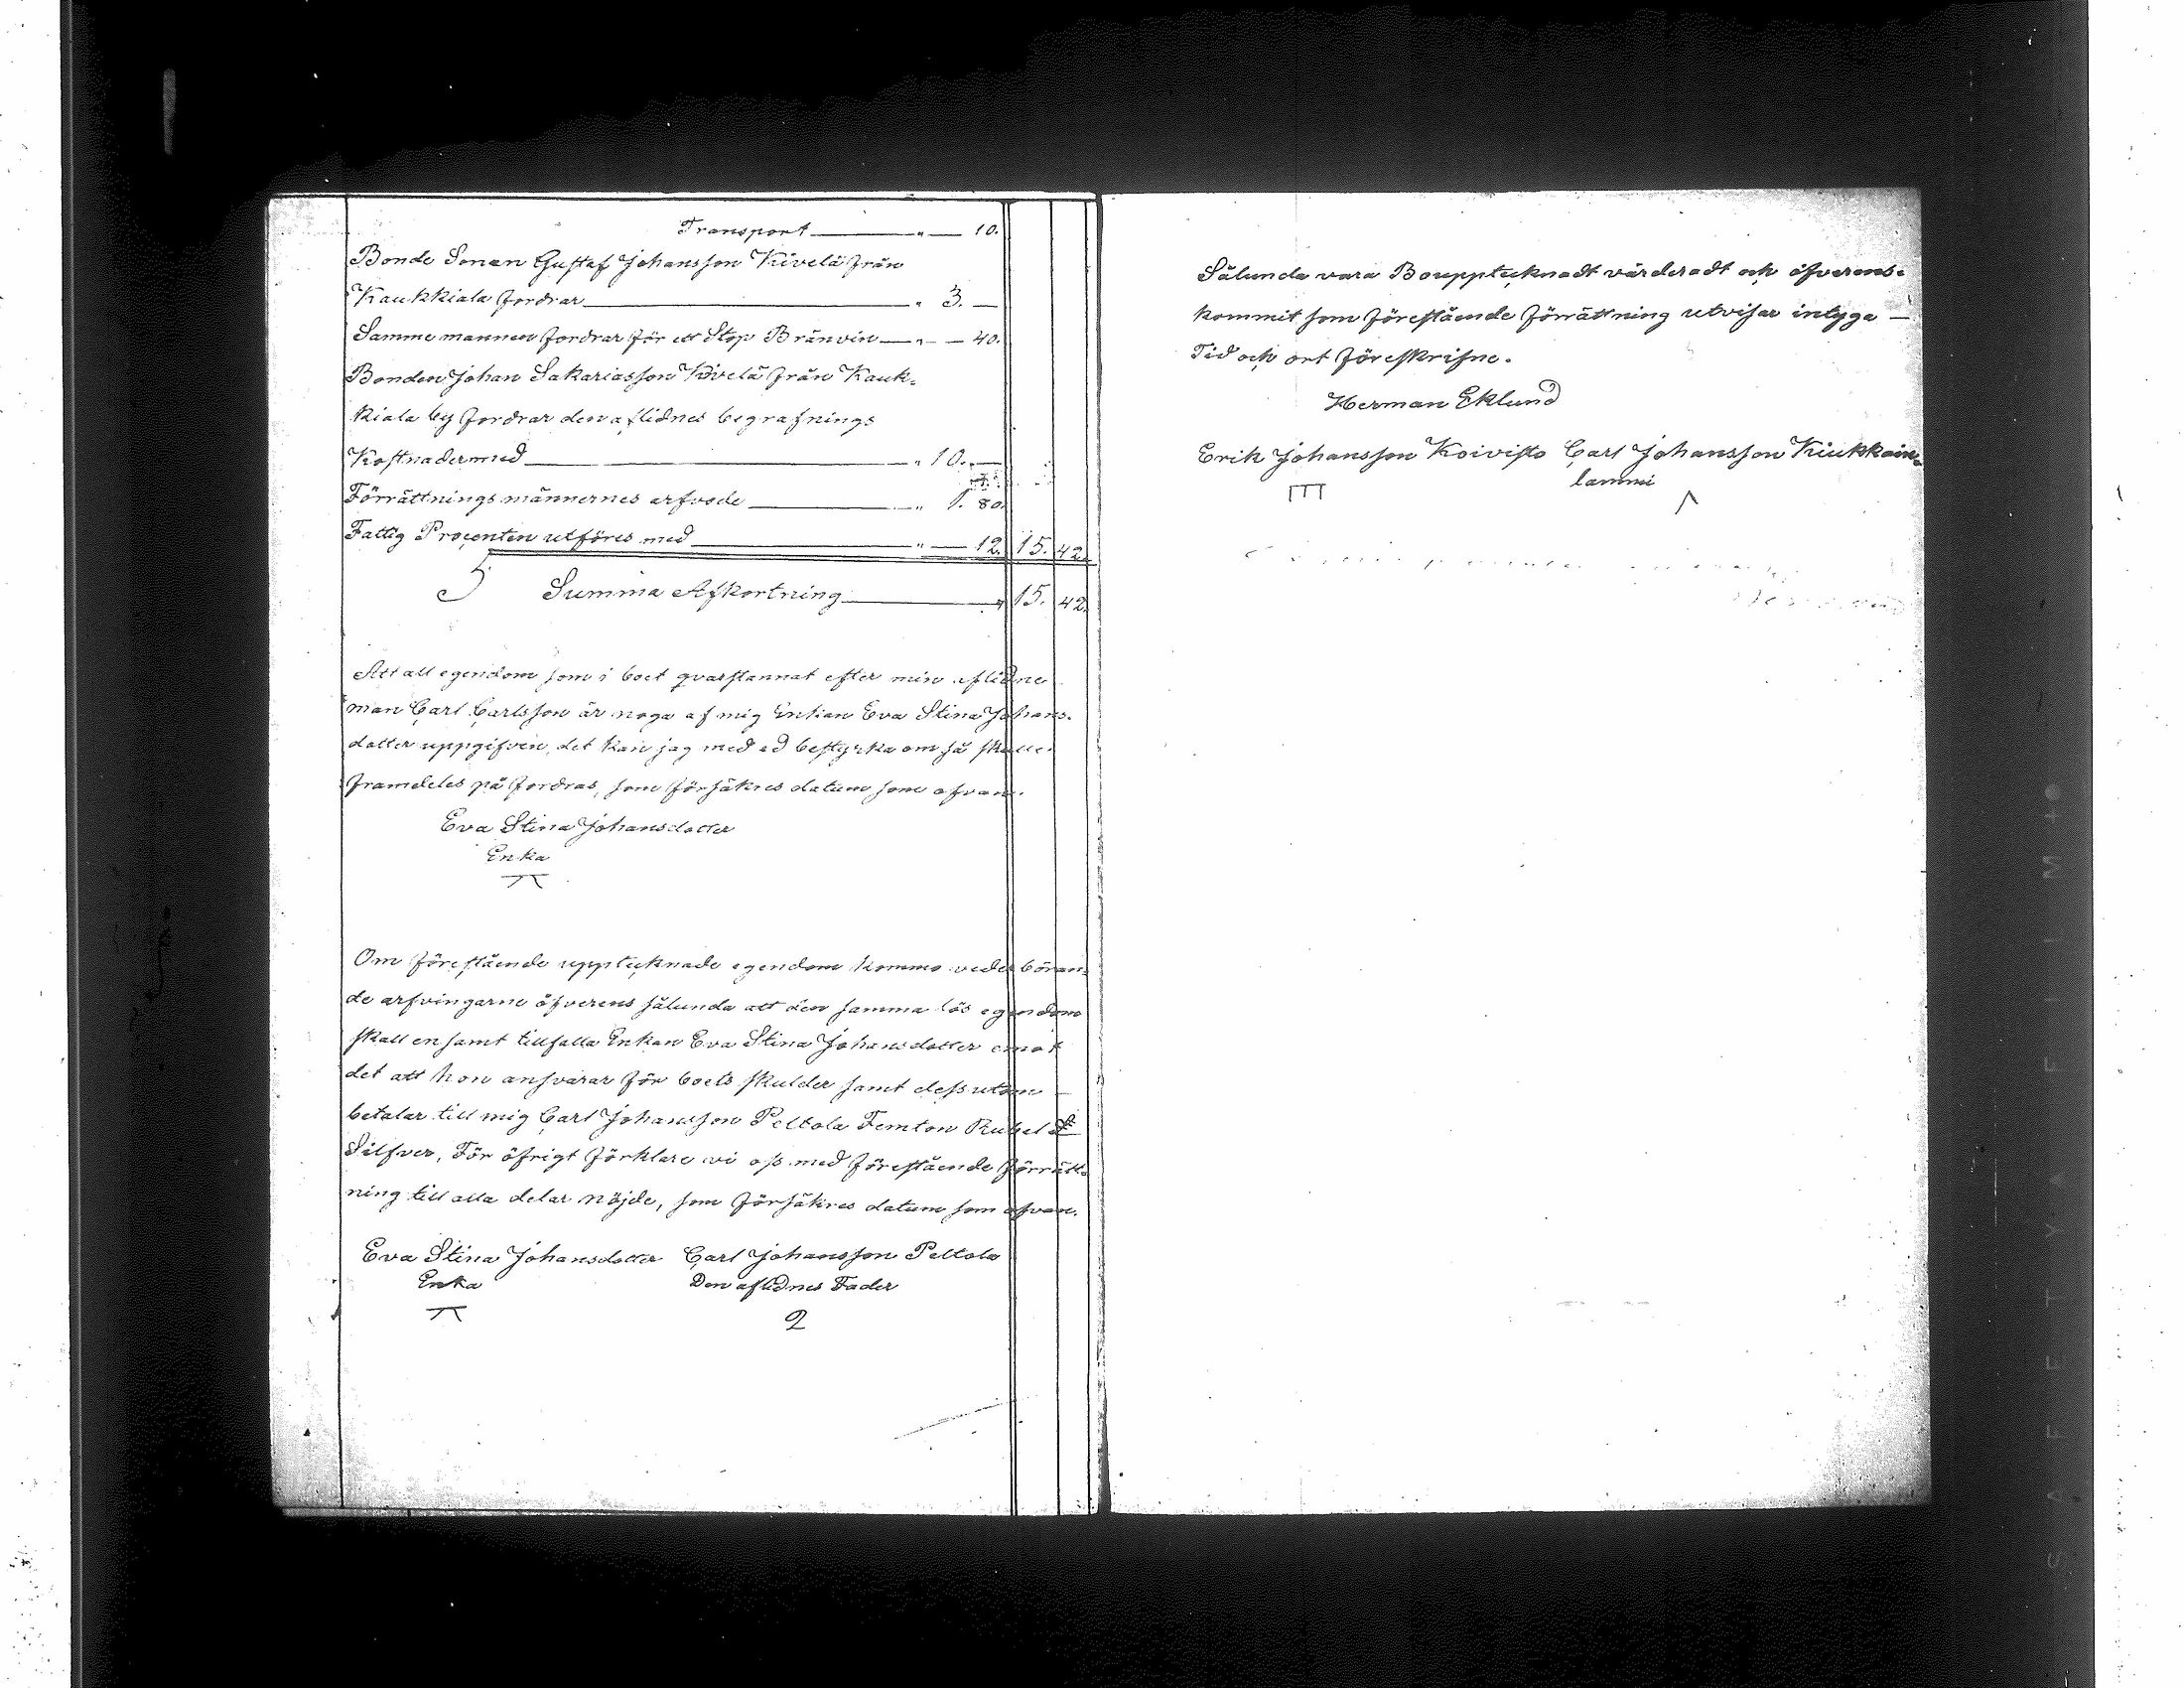 Transport — " — 10.
Bonde Sonen Gustaf Johansson Kivelä från
Kaukkiala fordrar — " 3. —
Samme mannen fordrar för ett Stop Bränvin — " — 40.
Bonden Johan Sakariasson Kivelä från Kauk-
kiala by fordrar den aflidnes begrafnings
Kostnader med — " 10. —
Förrättningsmännernes arfvode — " 1. 80.
Fattig Procenten utföres med — " — 12. 15. 42.
Summa Afkortning — " 15. 42.
Att all egendom som i boet qvarstannat efter min aflidne
man Carl Carlsson är noga af mig Enkan Eva Stina Johans-
dotter uppgifven, det kan jag med ed bestyrka om så skulle
framdeles på fordras, som försäkres datum som ofvan.
Eva Stina Johansdotter
Enka
Om förestående upptecknade egendom kommo vederböran-
de arfvingarne öfverens sålunda att den samma lös egendom
skall ensamt tillfalla Enkan Eva Stina Johansdotter emot
det att hon ansvarar för boets skulder samt dessutom —
betalar till mig Carl Johansson Peltola Femton Rubel
Silfver, För öfrigt förklare vi oss med förestående förrätt-
ning till alla delar nöjde, som försäkres datum som ofvan.
Eva Stina Johansdotter Carl Johansson Peltola
Enka Den aflidnes Fader
Sålunda vara Boupptecknadt värderadt och öfverens-
kommit som förestående förrättning utvisar intyga —
Tid och ort föreskrifne.
Herman Eklund
Erik Johansson Koivisto Carl Johansson Kiukkain-
lammi
SAFETY FILM